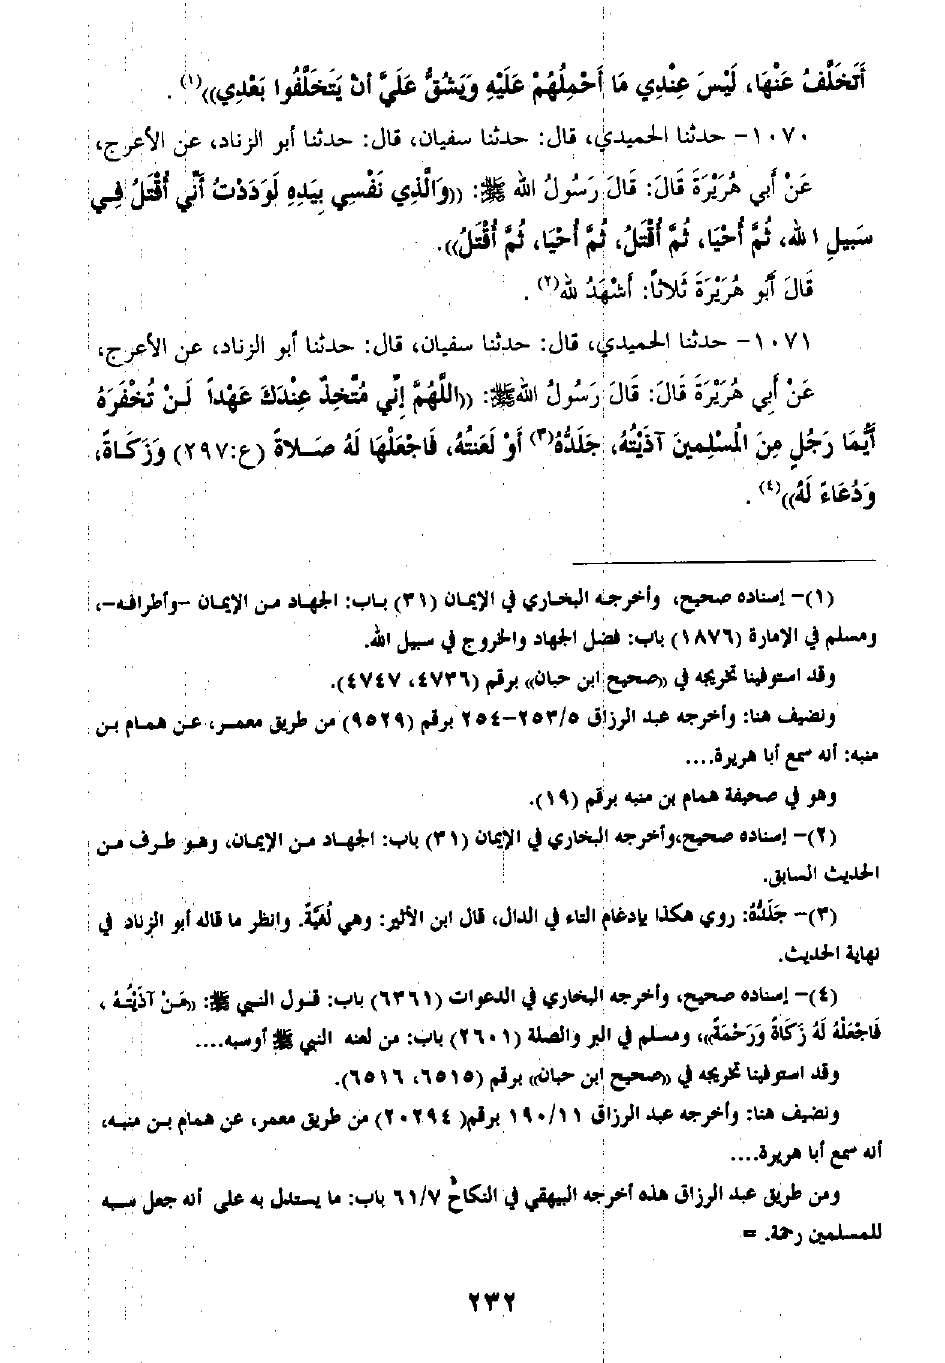 أَتَخَلَّفُ عَنْهَا، لَيْسَ عِنْدِي مَا أَحْمِلُهُمْ عَلَيْهِ وَيَشُقُّ عَلَيَّ أنْ يَتَخَلَّفُوا بَعْدِي))(١) .
١٠٧٠- حدثنا الحميدي، قال: حدثنا سفيان، قال: حدثنا أبو الزناد، عن الأعرج،
عَنْ أَبِي هُرَيْرَةَ قَالَ: قَالَ رَسُولُ الله ﷺ: ((وَالَّذِي نَفْسِي بِيَدِهِ لَوَدَدْتُ أَنِّي أُقْتَلُ فِي
سَبِيلِ الله، ثُمَّ أُحْيَا، ثُمَّ أُقْتَلُ، ثُمَّ أُحْيَا، ثُمَّ أُقْتَلُ)).
قَالَ أَبُو هُرَيْرَةَ ثَلاثاً: أَشْهَدُ لله(٢) .
١٠٧١- حدثنا الحميدي، قال: حدثنا سفيان، قال: حدثنا أبو الزناد، عن الأعرج،
عَنْ أَبِي هُرَيْرَةَ قَالَ: قَالَ رَسُولُ اللهﷺ: ((اللَّهُمَّ إِنِّي مُتَّخِذٌ عِنْدَكَ عَهْداً لَنْ تُخْفَرَهُ
أَيُّمَا رَجُلٍ مِنَ الْمُسْلِمِينَ آذَيْتُهُ، جَلَدُّهُ(٣) أوْ لَعَنتُهُ، فَاجْعَلْهَا لَهُ صَلاةً (ع:٢٩٧) وَزَكَاةً،
وَدُعَاءً لَهُ))(٤) .
(١)- إسناده صحيح، وأخرجه البخاري في الإيمان (٣١) باب: الجهاد من الإيمان -وأطرافه-،
ومسلم في الإمارة (١٨٧٦) باب: فضل الجهاد والخروج في سبيل الله.
وقد استوفينا تخريجه في ((صحيح ابن حبان)) برقم (٤٧٣٦، ٤٧٤٧).
ونضيف هنا: وأخرجه عبد الرزاق ٢٥٣/٥-٢٥٤ برقم (٩٥٢٩) من طريق معمر، عن همام بن
منبه: أنه سمع أبا هريرة....
وهو في صحيفة همام بن منبه برقم (١٩).
(٢)- إسناده صحيح،وأخرجه البخاري في الإيمان (٣١) باب: الجهاد من الإيمان، وهو طرف من
الحديث السابق.
(٣)- جَلَدُّهُ: روي هكذا بإدغام التاء في الدال، قال ابن الأثير: وهي لُغَيَّةٌ. وانظر ما قاله أبو الزناد في
نهاية الحديث.
(٤)- إسناده صحيح، وأخرجه البخاري في الدعوات (٦٣٦١) باب: قول النبي ﷺ: ((مَنْ آذَيْتُهُ ،
فَاجْعَلْهُ لَهُ زَكَاةً وَرَحْمَةً))، ومسلم في البر والصلة (٢٦٠١) باب: من لعنه النبي ﷺ أوسبه....
وقد استوفينا تخريجه في ((صحيح ابن حبان)) برقم (٦٥١٥، ٦٥١٦).
ونضيف هنا: وأخرجه عبد الرزاق ١٩٠/١١ برقم( ٢٠٢٩٤) من طريق معمر، عن همام بن منبه،
أنه سمع أبا هريرة....
ومن طريق عبد الرزاق هذه أخرجه البيهقي في النكاح ٦١/٧ باب: ما يستدل به على أنه جعل سبه
للمسلمين رحمة. =
٢٣٢